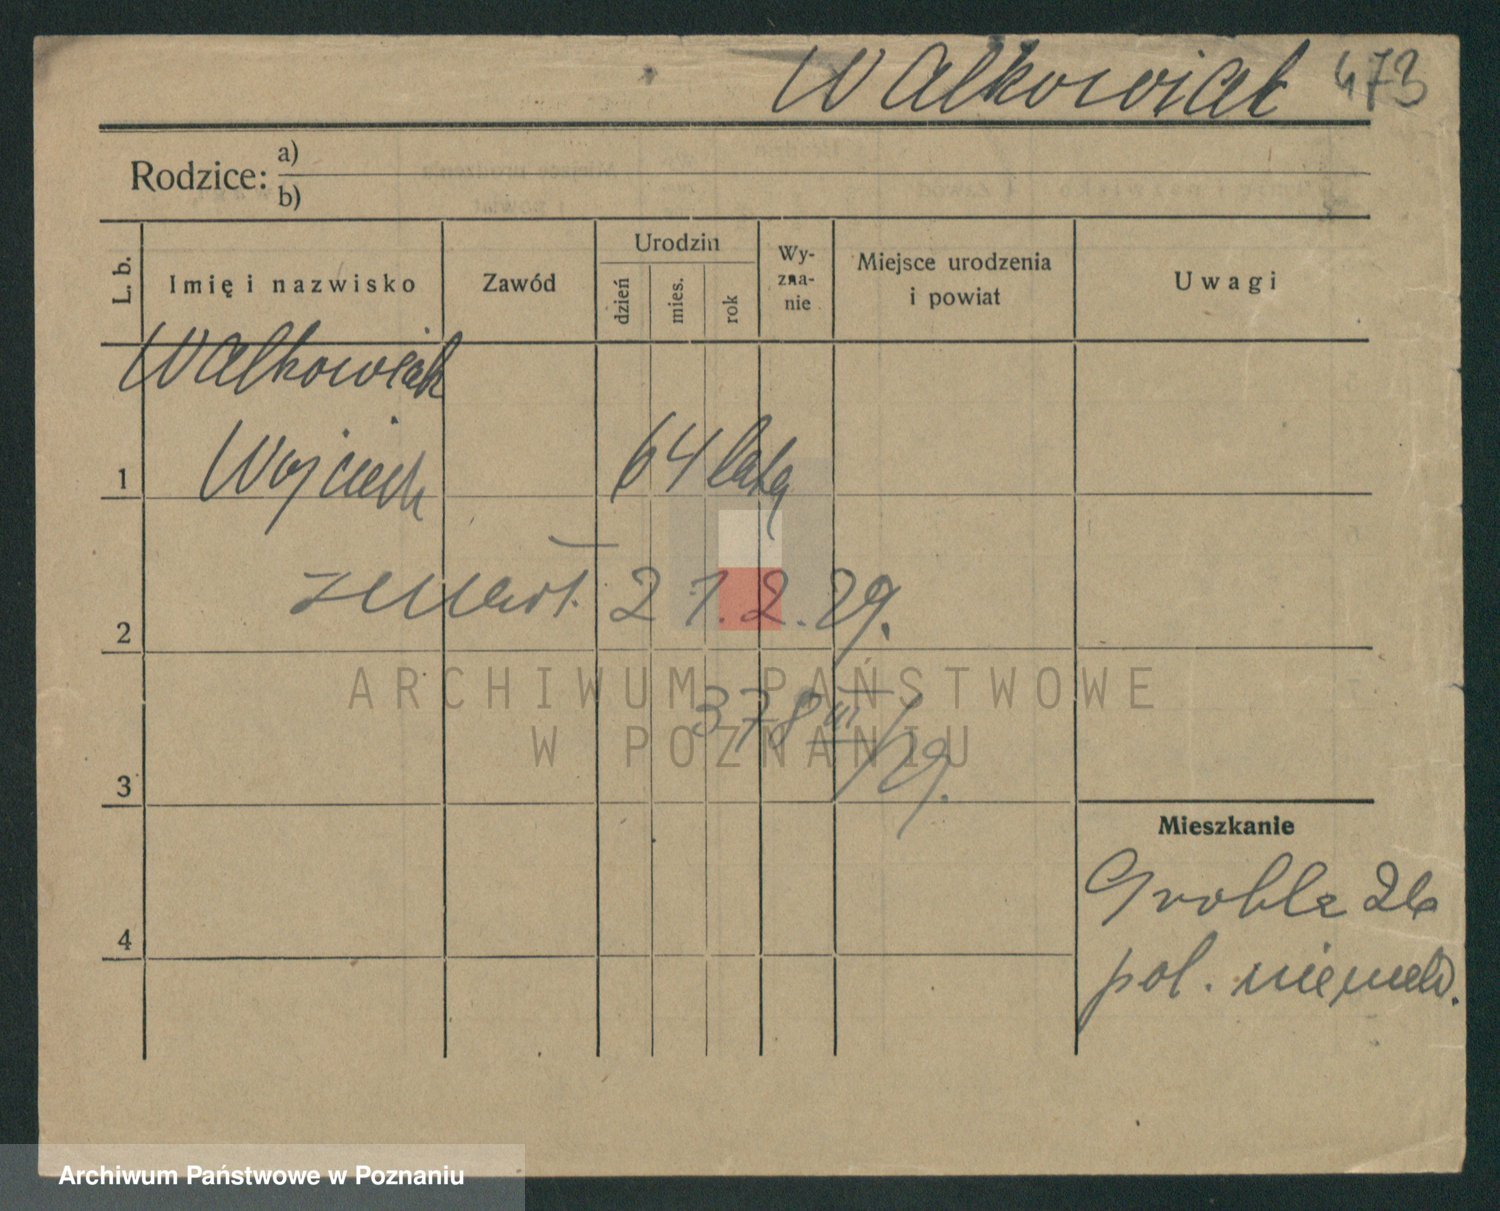 Walkowiak 473
Rodzice: a)
b)
L. b.
Imię i nazwisko
Zawód
Urodzin
dzień
mies.
rok
Wy-
zna-
nie
Miejsce urodzenia
i powiat
Uwagi
Walkowiak
1 Wojciech 64 lata
2 zmarł. 21.2.29.
ARCHIWUM PAŃSTWOWE
378 III/29.
W POZNANIU
3
Mieszkanie
Grobla 26
4
pol. niemeld.
Archiwum Państwowe w Poznaniu